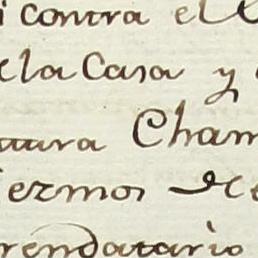 i contra el C
e la Casa y
aura Cham
iermos de
rendatario